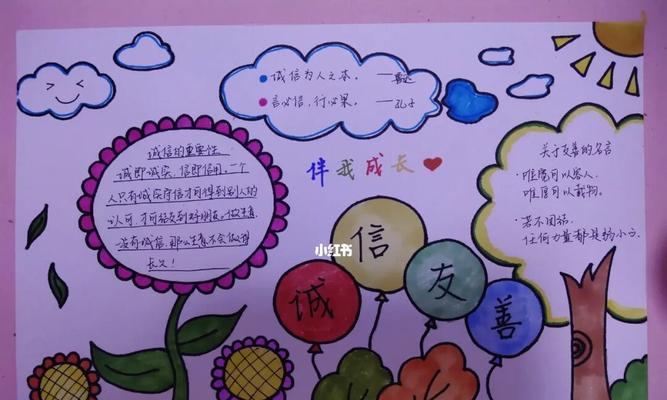 诚信为人之本。——鲁迅
言必信，行必果。——孔子
伴我成长
诚信的重要性
诚即诚实，信即信用。一个
人只有诚实守信才可得到别人的
认可，才可结交到好朋友。做生意
没有诚信，那么生意不会做得
长久！
关于友善的名言
·唯宽可以容人，
唯厚可以载物。
·若不团结，
任何力量都是弱小的。
小红书
诚信友善